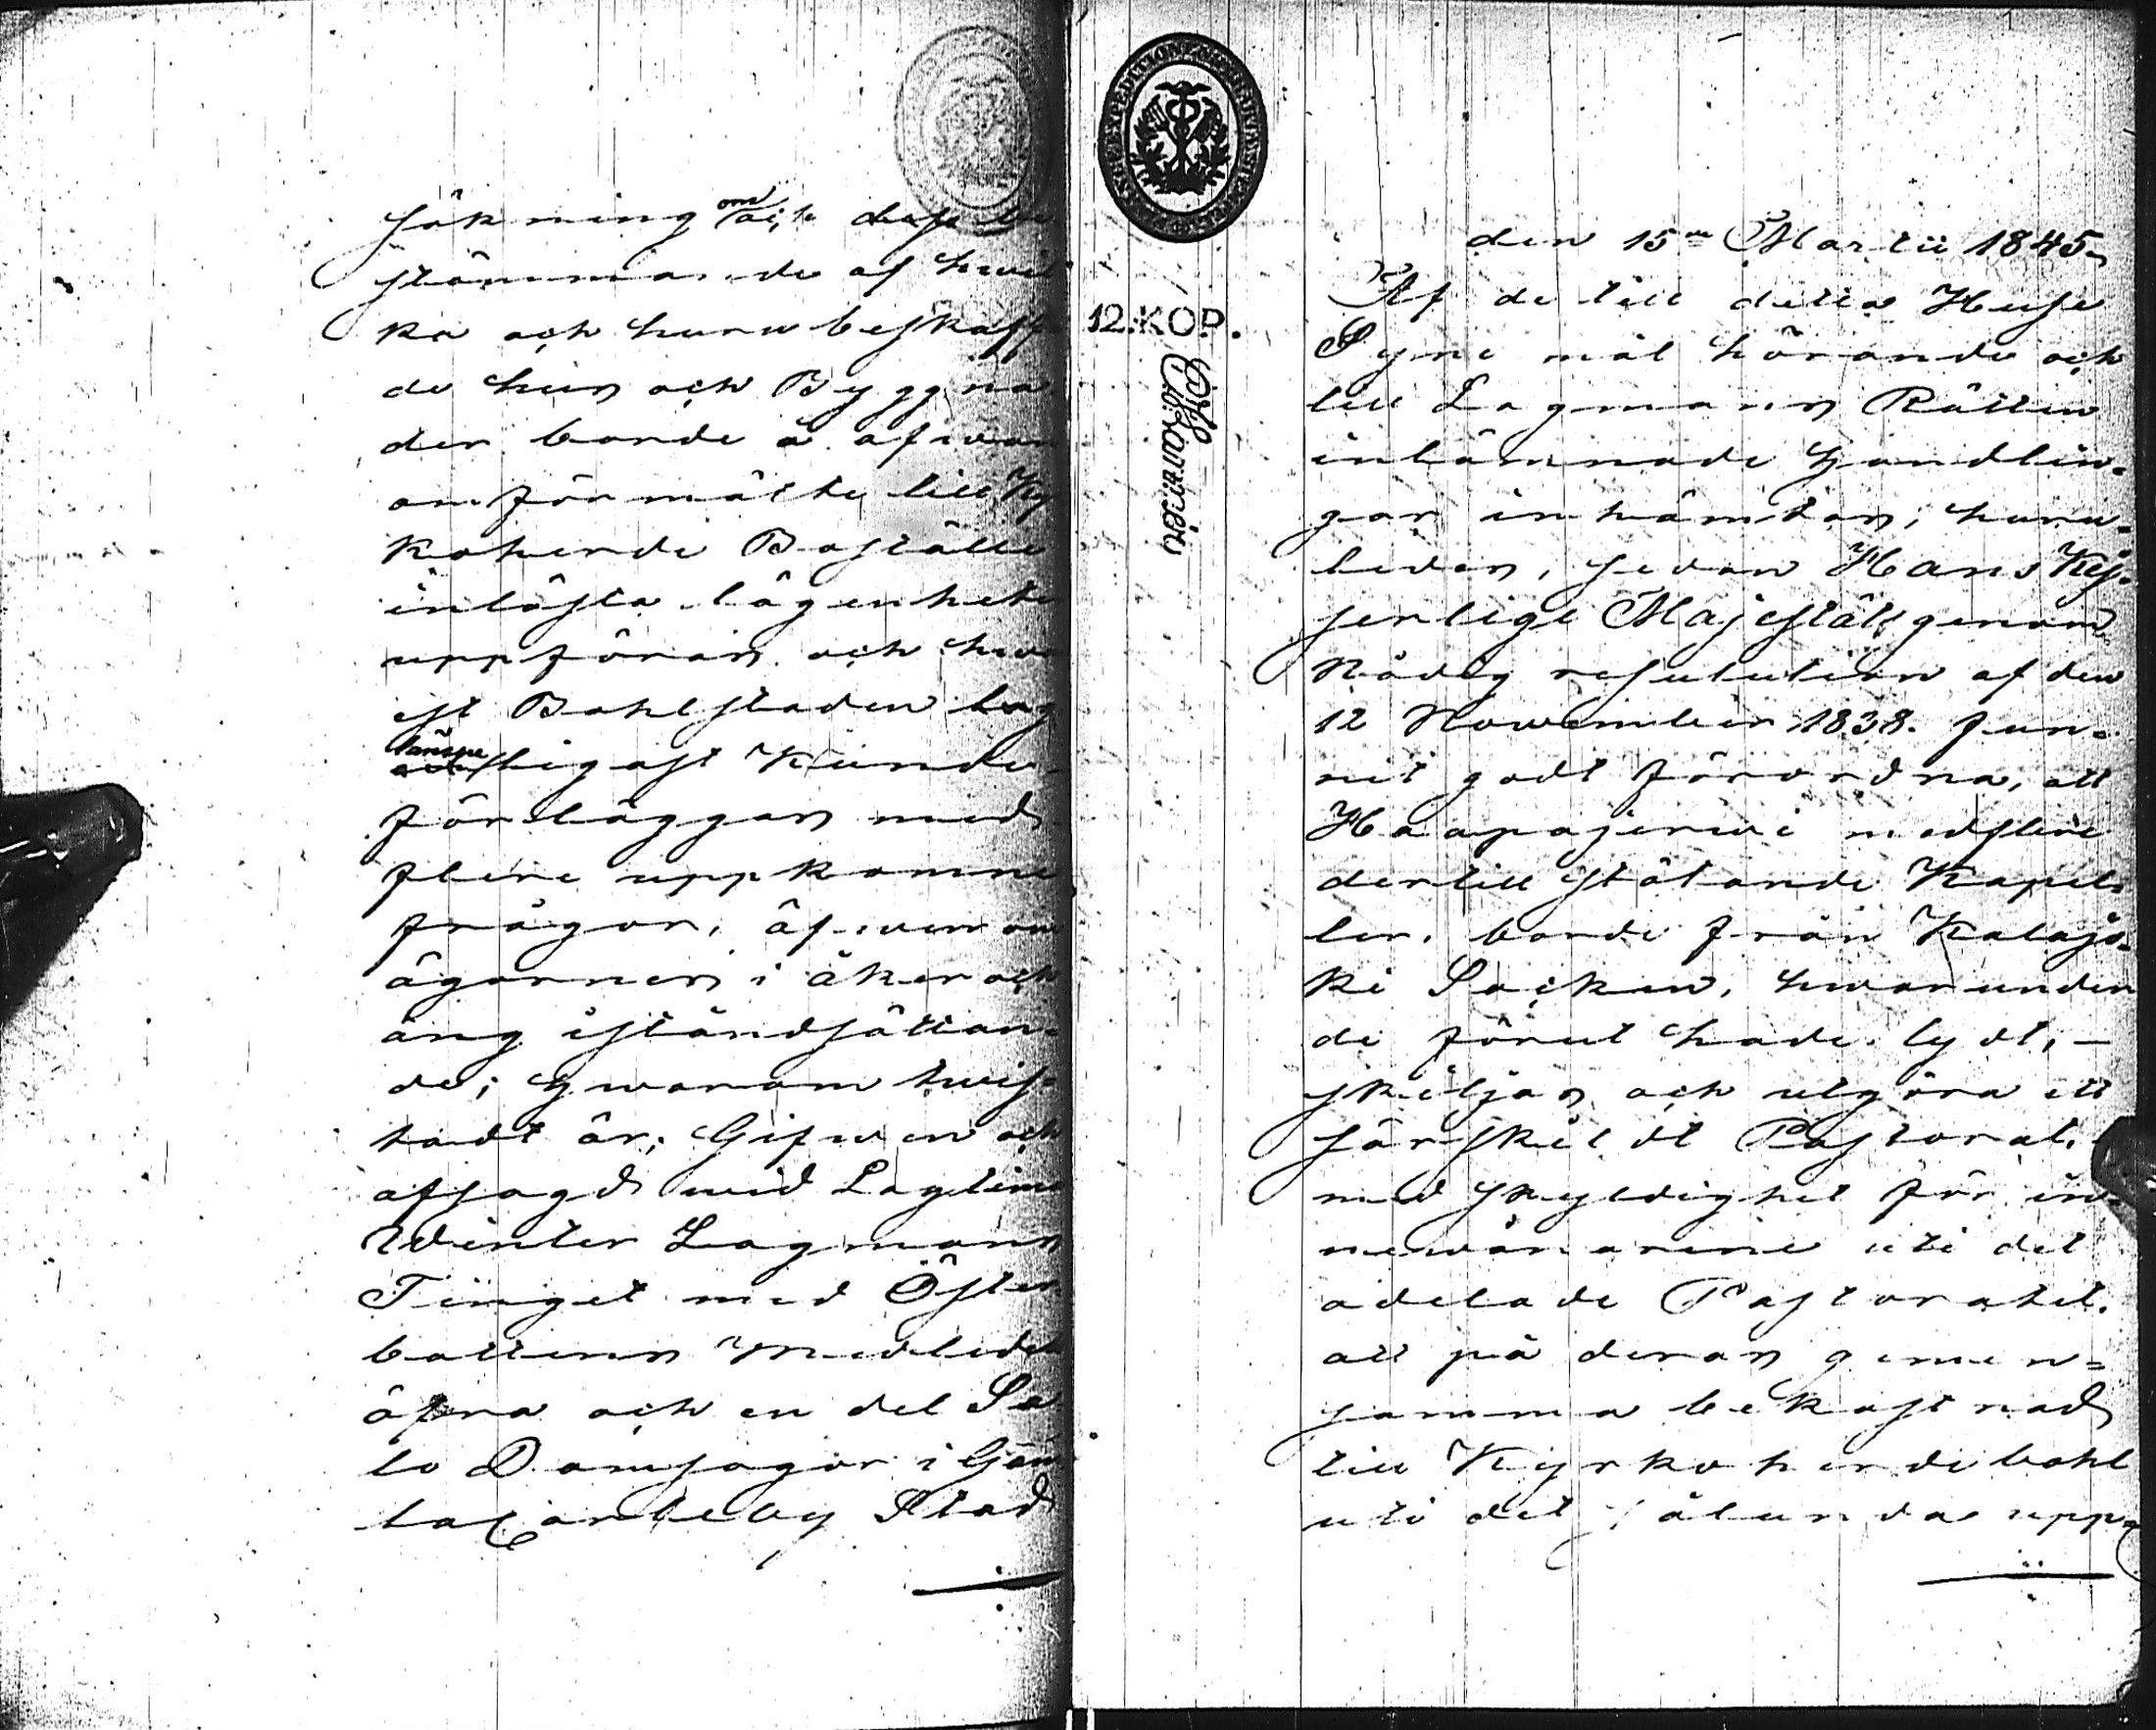 sökning om och dess be
stämmande af hwil
ka och huru beskaffa
de hus och Byggna
der borde å afwan
omförmälte till Ky
koherde Boställe
inlösta lägenheter
uppföras och hwar
est Bohlstaden lag
länspe ligast kunde
förläggas med
flere uppkomne
frågor, äfwen om
ägornes i åker och
äng iståndsättan-
de; hwarom twis-
tadt är; Gifwen och
afsagd wid Lagtima
Winter Lagmans
Tinget med Öster-
bottens Medledels
öfra och en del Sa
lo Domsagor i Gam
la Carleby Stad
den 15de Martii 1845.
Af de till detta Huse
Syne mål hörande och
till Lagmans Rätten
inlämnade Handlin-
gar inhämtas, huru-
ledes, sedan Hans Kej-
serlige Majestät genom
Nådig resolution af den
12 November 1838. fun-
nit godt förordna, att
Haapajerwi med flere
dertill stötande Kapel-
ler, borde från Kalajo-
ki Socken, hwarunder
de förut hade lydt, -
skiljas och utgöra ett
särskildt Pastorat,
med skyldighet för in-
newånarene uti det
adelade Pastoratet.
att på deras gemen-
samma bekostnad
till Kyrkoherdebohl
uti det sålunda upp-
12.KOP.